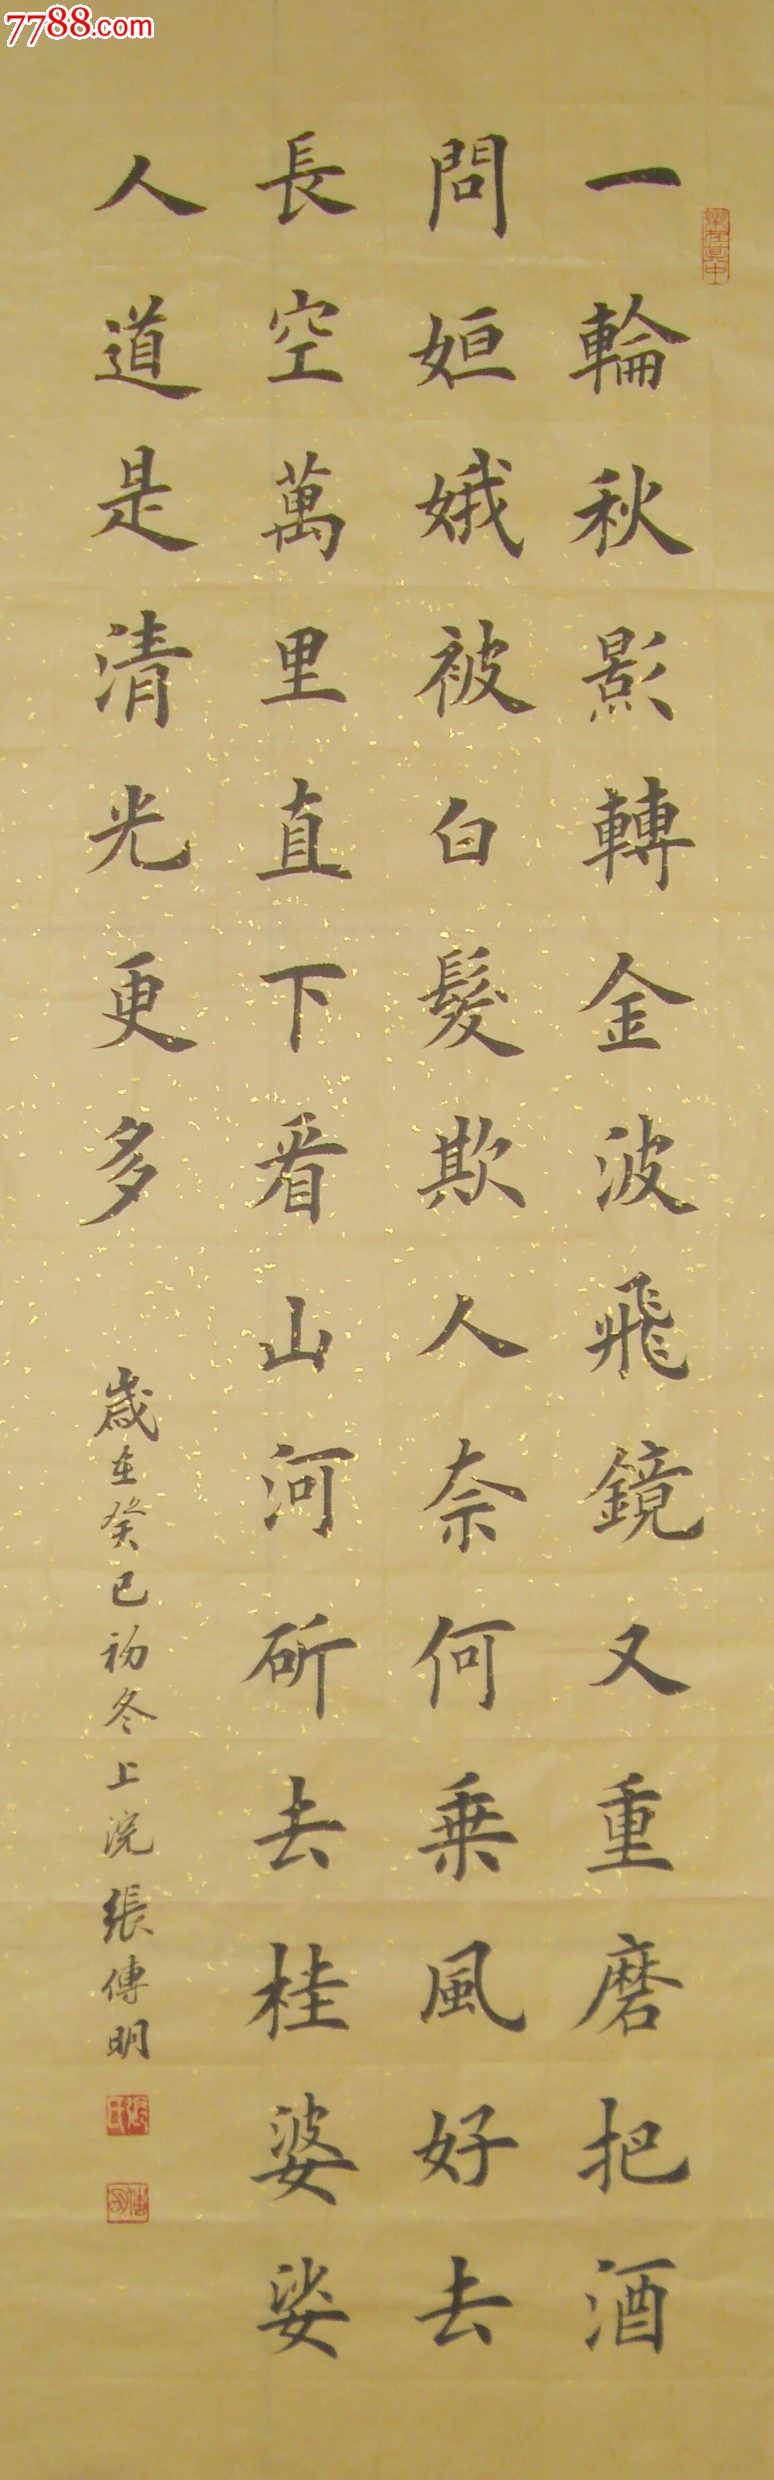 7788.com
一輪秋影轉金波飛鏡又重磨把酒
問姮娥被白髮欺人奈何乗風好去
長空萬里直下看山河斫去桂婆娑
人道是清光更多
歲在癸巳初冬上浣張傳明